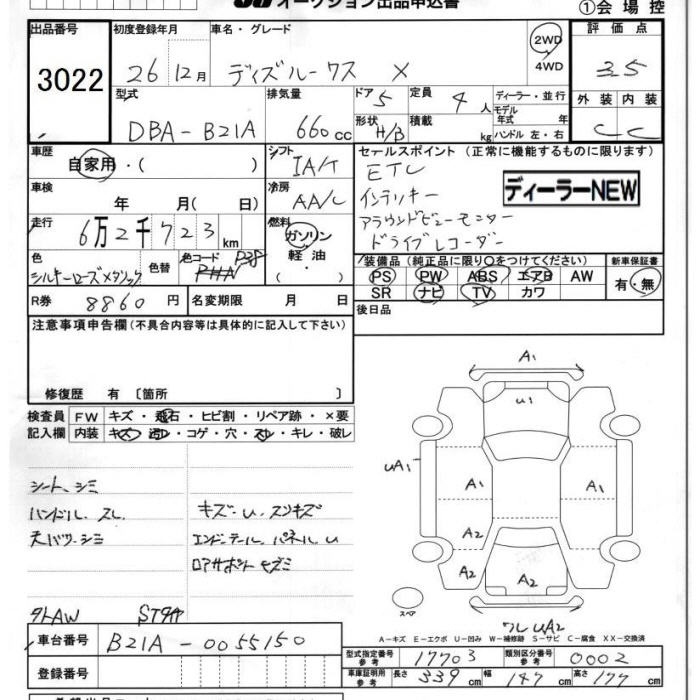 オークション出品申込書 ①会場控
出品番号 初度登録年月 車名・グレード 評価点
3022 26 12月 デイズルークス X 2WD 4WD 3.5
型式 排気量 ドア 定員 ディーラー・並行 外装 内装
DBA-B21A 660cc 5 4人 モデル年式 年 C C
形状 H/B 積載 kg ハンドル 左・右
車歴 シフト セールスポイント (正常に機能するものに限ります)
自家用・( ) IA/T ETC
車検 冷房 インテリキー ディーラーNEW
年 月( 日) AA/C アラウンドビューモニター
走行 燃料 ドライブレコーダー
6万2千723km ガソリン 軽油・
色 色替 色コード 装備品(純正品に限り○をつけてください) 新車保証書
シルキーローズメタリック PHN P38 PS PW ABS エアB AW 有・無
SR ナビ TV カワ
R券 8860円 名変期限 月 日 後日品
注意事項申告欄(不具合内容等は具体的に記入して下さい)
修復歴 有 〔箇所 〕
検査員 FW キズ・飛石・ヒビ割・リペア跡・×要
記入欄 内装 キズ・汚れ・コゲ・穴・スレ・キレ・破レ
A1
U1
UA1 A1 A1
A2
A2 A2
シート、シミ
ハンドル、スレ キズ・U、スリキズ
天バリ・シミ エンドーテール、パネル U
ロアサポート キズミ
スペア
外AW STタヤ ワレ UA2
A-キズ E-エクボ U-凹み W-補修跡 S-サビ C-腐食 XX-交換済
車台番号 B21A-0055150
型式指定番号 参考 17703 類別区分番号 参考 0002
登録番号 車庫証明用 参考 長さ 339cm 幅 147cm 高さ 177cm